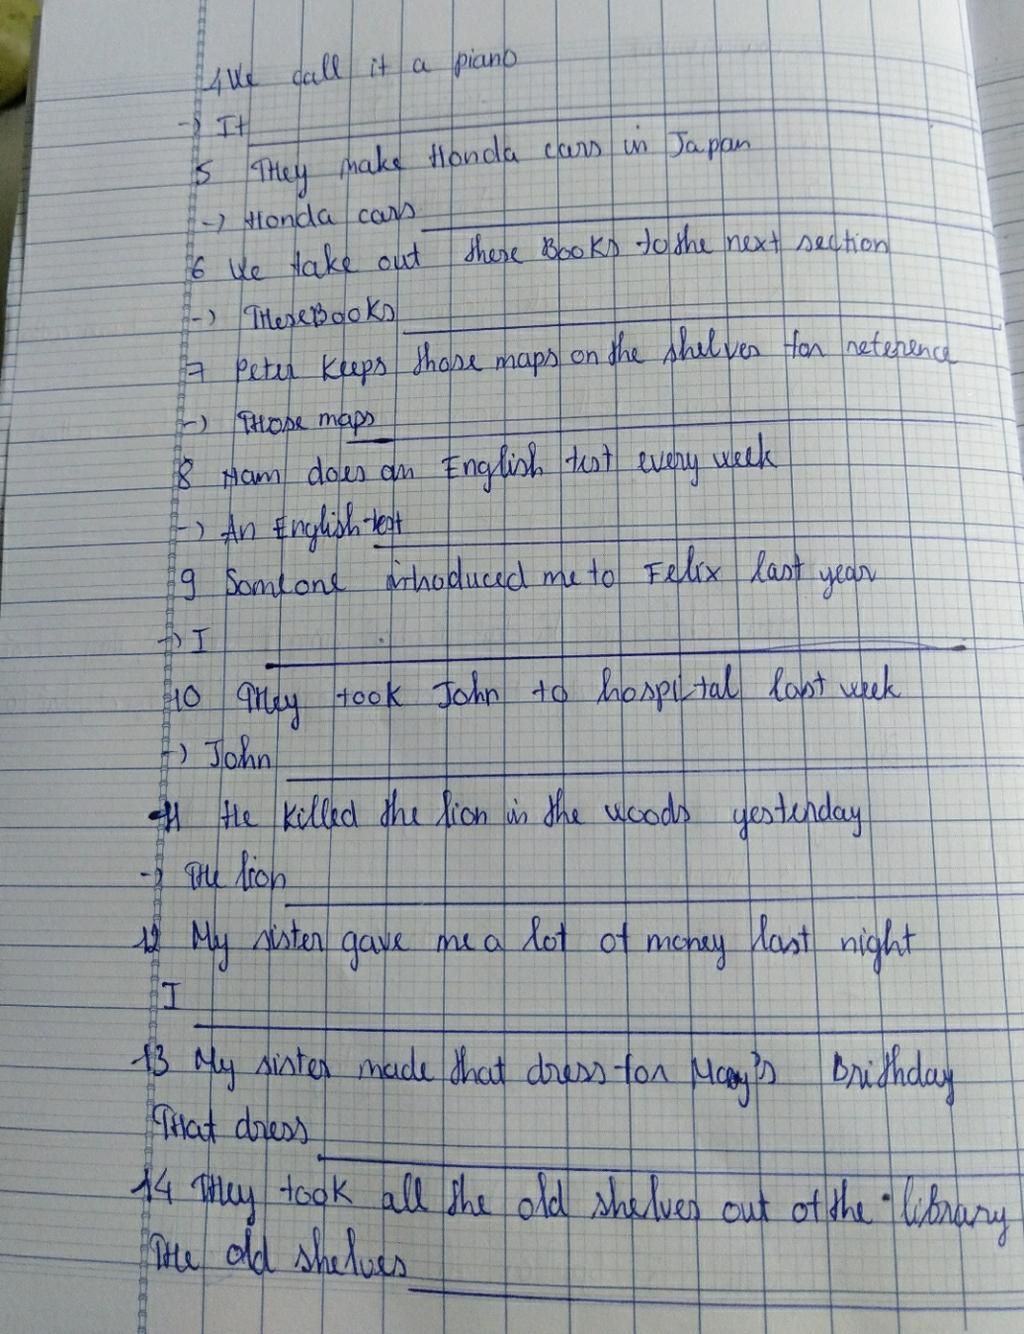 4 We call it a piano
-> It
5 They make Honda cars in Japan
-> Honda cars
6 We take out these Books to the next section
-> These Books
7 Peter Keeps those maps on the shelves for reference
-> Those maps
8 Ham does an English test every week
-> An English test
9 Someone introduced me to Felix last year
-> I
10 They took John to hospital last week
-> John
11 He killed the lion in the woods yesterday
-> The lion
12 My sister gave me a lot of money last night
I
13 My sister made that dress for Mary's Brithday
That dress
14 They took all the old shelves out of the library
The old shelves